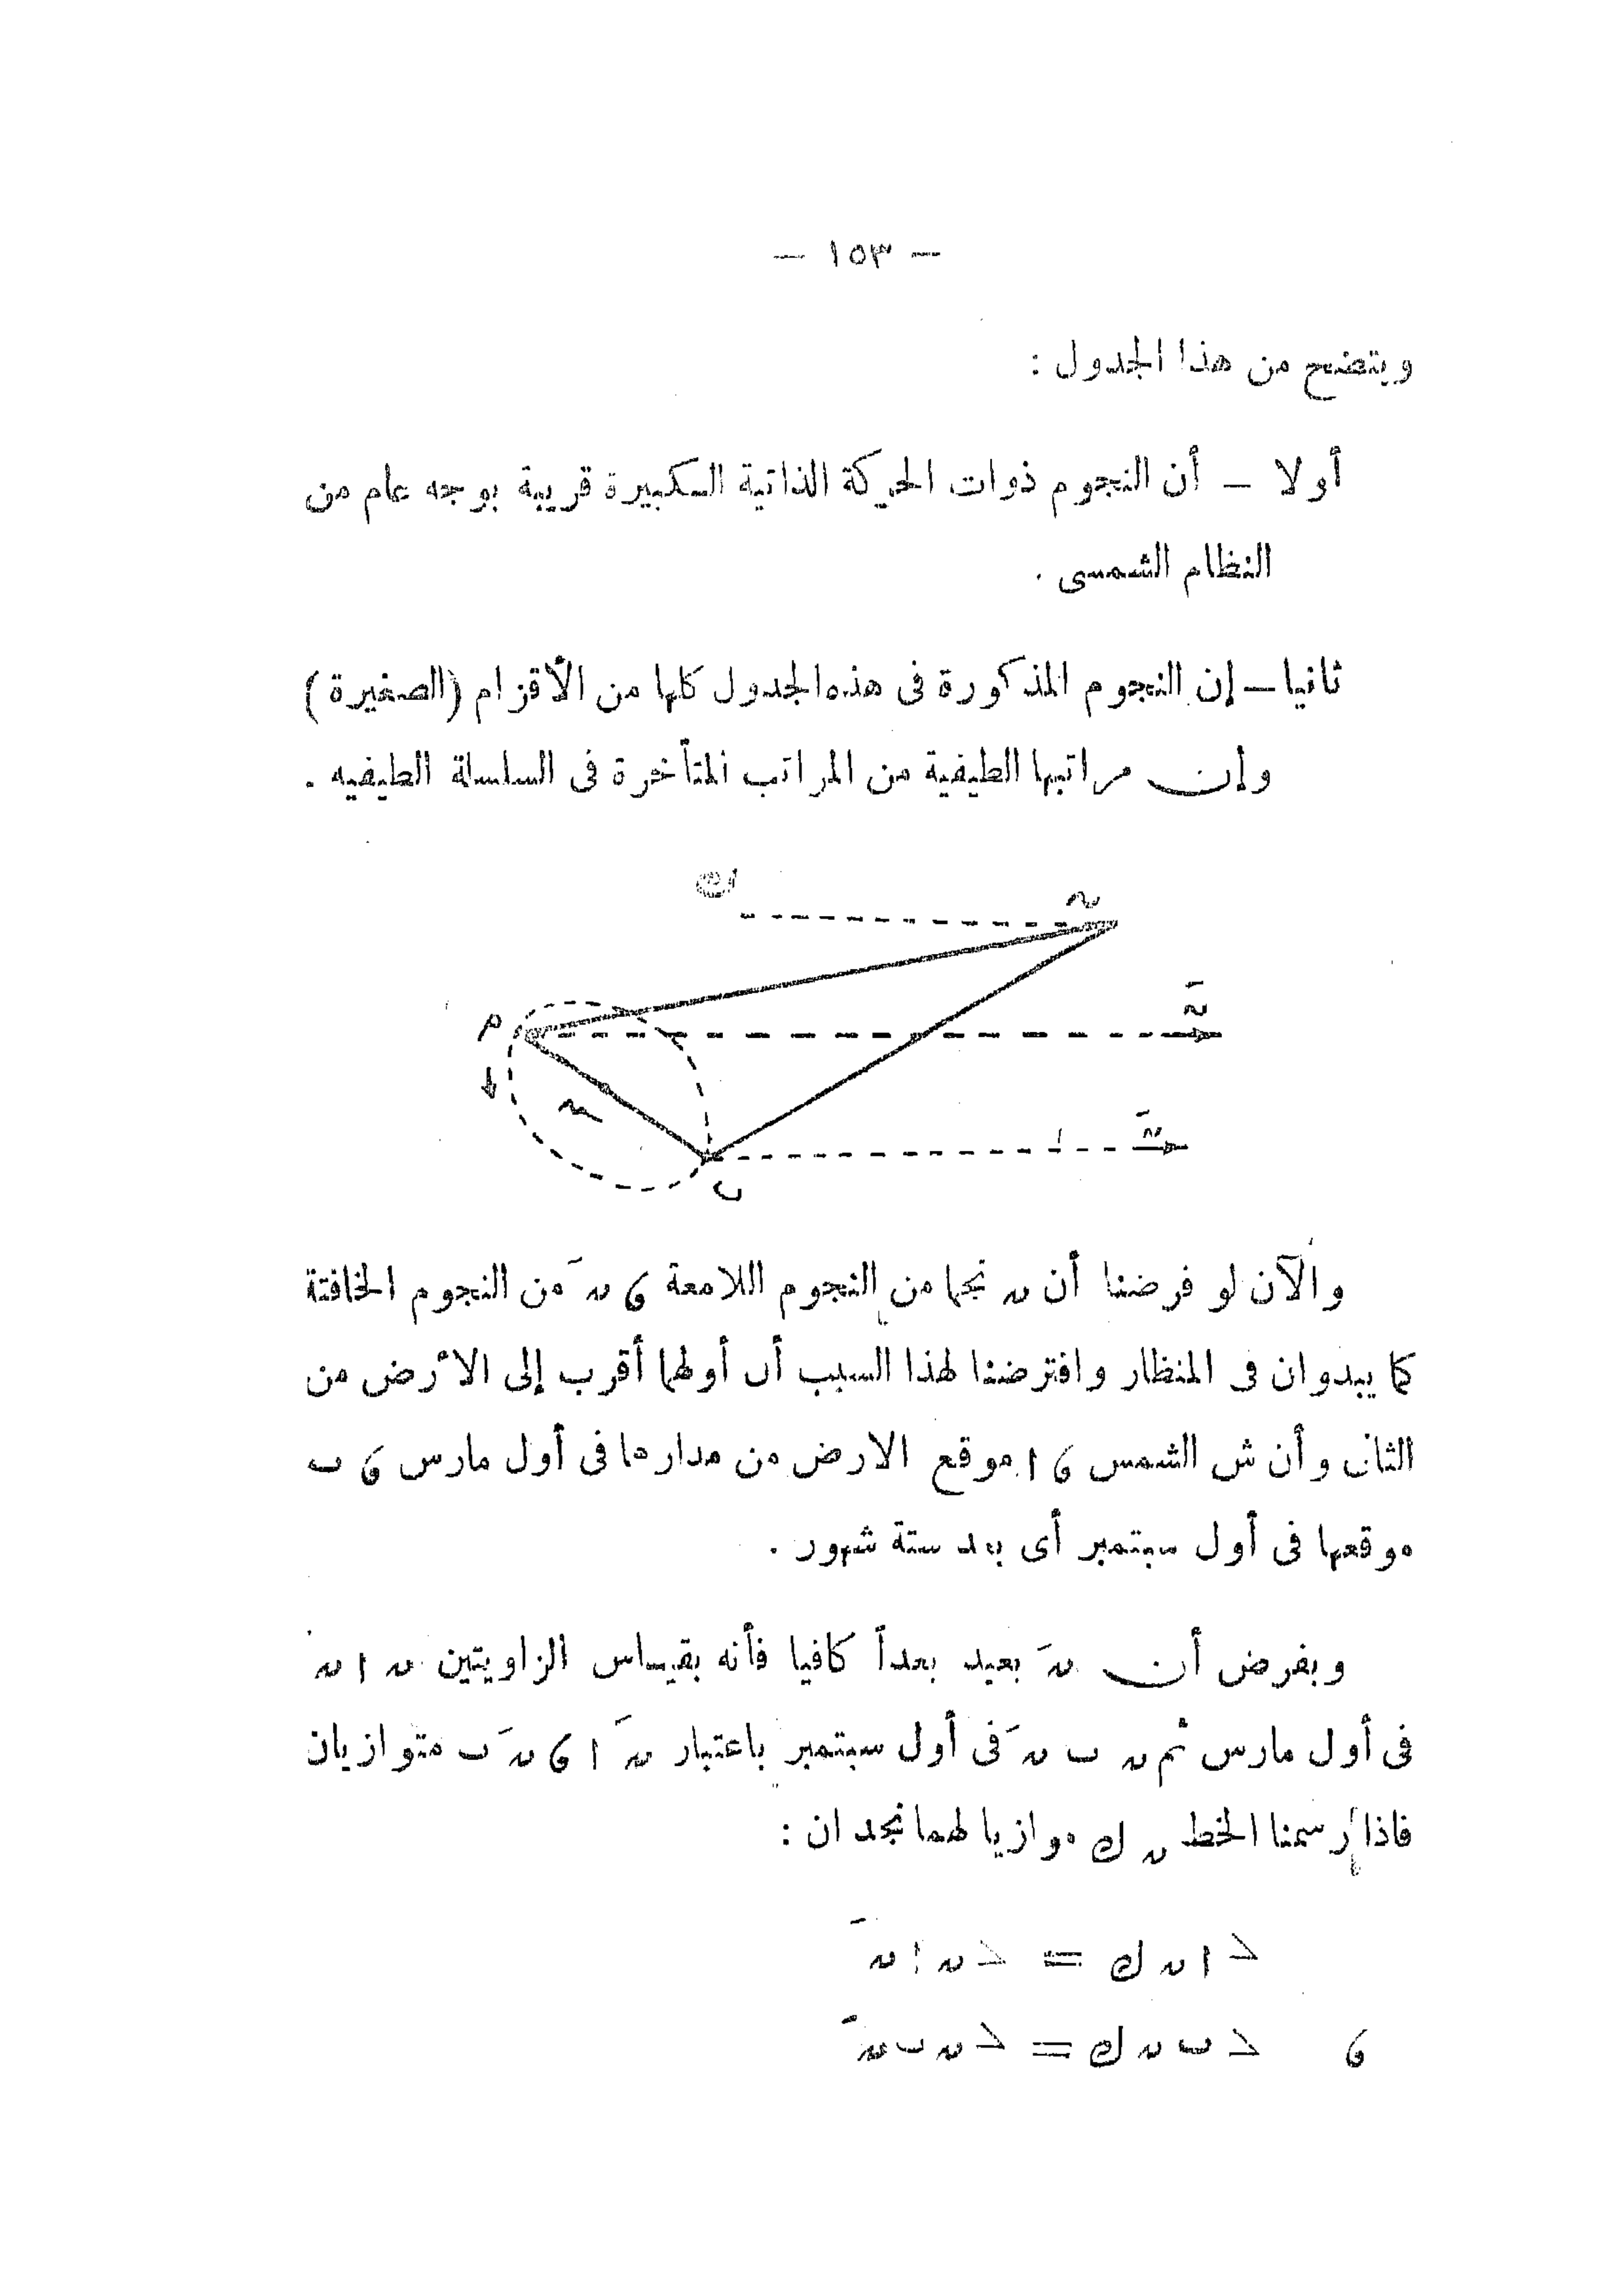 — ١٥٣ —
ويتضح من هذا الجدول :
أولا — أن النجوم ذوات الحركة الذاتية الكبيرة قريبة بوجه عام من
النظام الشمسى .
ثانيا — إن النجوم المذكورة فى هذه الجدول كلها من الأقزام (الصغيرة)
وإن مراتبها الطيفية من المراتب المتأخرة فى السلسلة الطيفيه .
ك
ں
مَ
ںَ
س
ںَ
ب
والآن لو فرضنا أن ں نجما من النجوم اللامعة ، ںَ من النجوم الخافتة
كما يبدوان فى المنظار وافترضنا لهذا السبب أن أولهما أقرب إلى الأرض من
الثانى وأن ش الشمس ، ا موقع الارض من مدارها فى أول مارس ، ب
موقعها فى أول سبتمبر أى بعد ستة شهور .
وبفرض أن ںَ بعيد بعداً كافيا فأنه بقياس الزاويتين ں ا ںَ
فى أول مارس ثم ں ب ںَ فى أول سبتمبر باعتبار ںَ ا ، ںَ ب متوازيان
فاذا رسمنا الخط ں ك موازيا لهما نجد ان :
> ا ں ك = > ں ا ںَ
، > ب ں ك = > ں ب ںَ